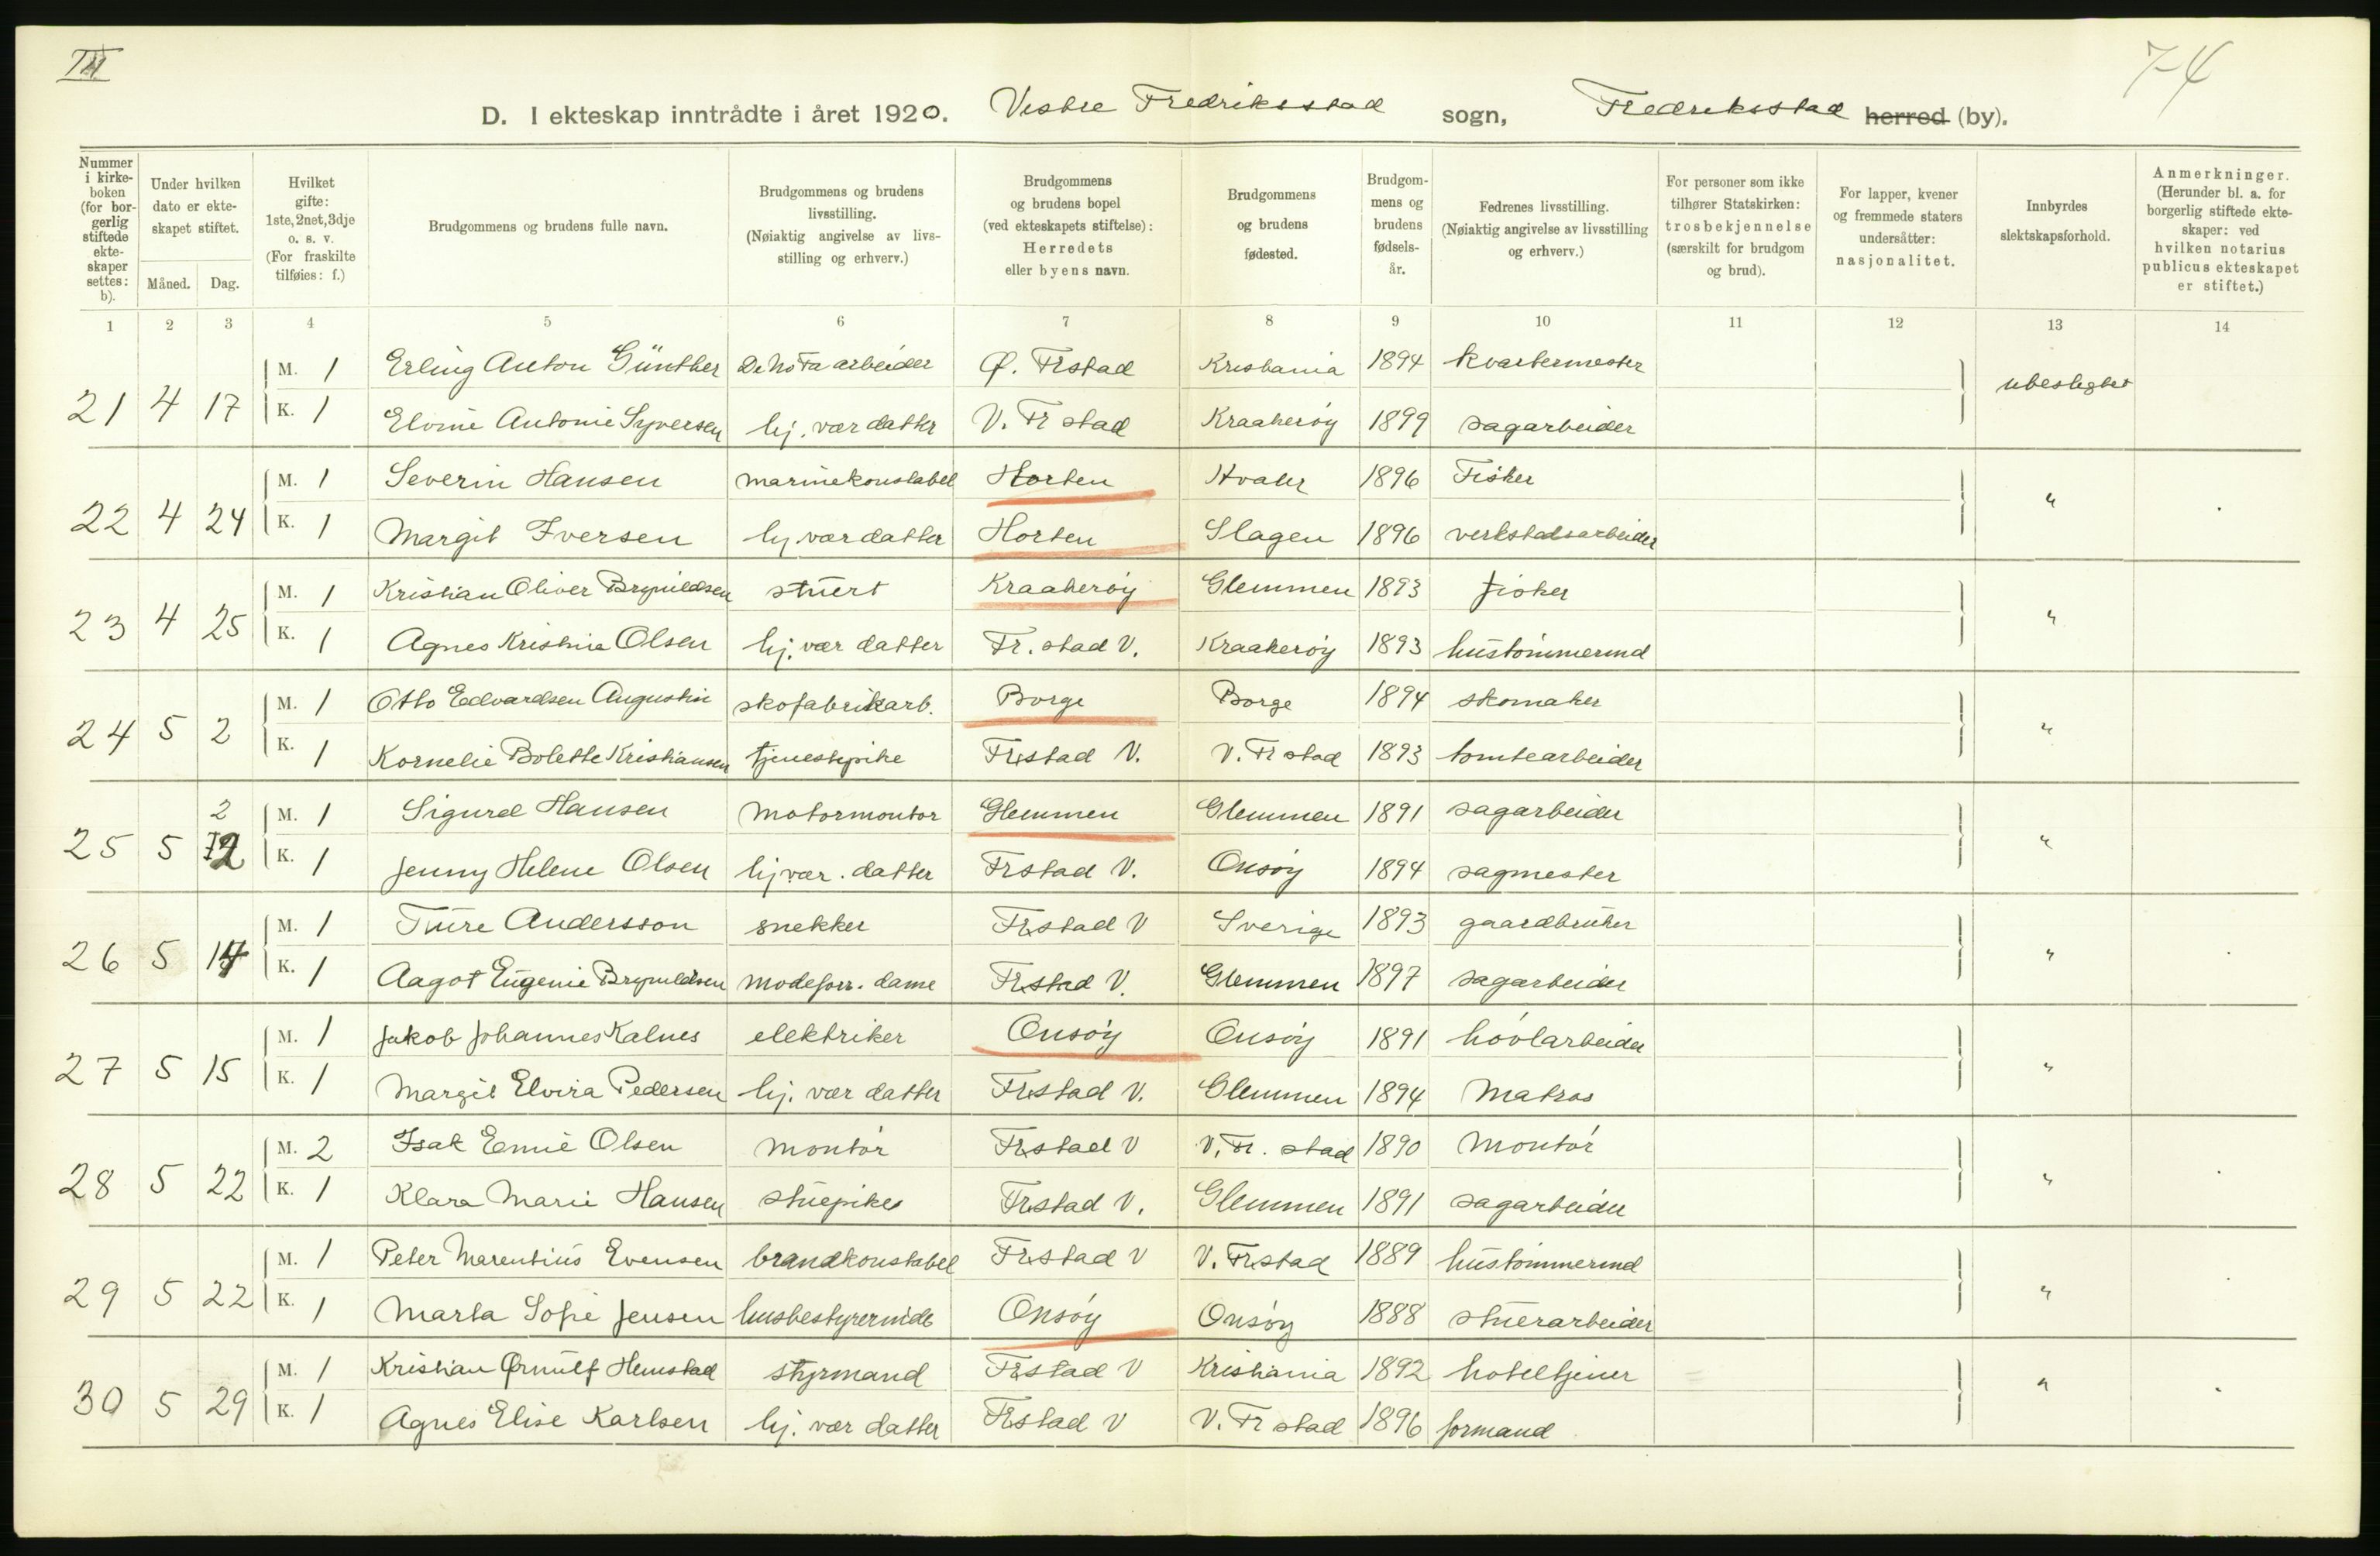 74
D. I ekteskap inntrådte i året 1920. Vestre Fredriksstad sogn, Fredriksstad herred (by).
Nummer i kirke-boken (for bor-gerlig stiftede ekte-skaper settes: b).
Under hvilken dato er ekte-skapet stiftet.
Måned. Dag.
Hvilket gifte: 1ste, 2net, 3dje o. s. v. (For fraskilte tilføies: f.)
Brudgommens og brudens fulle navn.
Brudgommens og brudens livsstilling. (Nøiaktig angivelse av livs-stilling og erhverv.)
Brudgommens og brudens bopel (ved ekteskapets stiftelse): Herredets eller byens navn.
Brudgommens og brudens fødested.
Brudgom-mens og brudens fødsels-år.
Fedrenes livsstilling. (Nøiaktig angivelse av livsstilling og erhverv.)
For personer som ikke tilhører Statskirken: trosbekjennelse (særskilt for brudgom og brud).
For lapper, kvener og fremmede staters undersåtter: nasjonalitet.
Innbyrdes slektskapsforhold.
Anmerkninger. (Herunder bl. a. for borgerlig stiftede ekte-skaper: ved hvilken notarius publicus ekteskapet er stiftet.)
1 2 3 4 5 6 7 8 9 10 11 12 13 14
M. 1 Erling Anton Günther De No Fa arbeider Ø. Frstad Kristiania 1894 kvartermester ubeslegtet
21 4 17 K. 1 Elvine Antonie Syversen hj. vær datter V. Fr stad Kraakerøy 1899 sagarbeider
M. 1 Severin Hansen marinekonstabel Horten Hvaler 1896 Fisker "
22 4 24 K. 1 Margit Iversen hj vær datter Horten Slagen 1896 verkstadsarbeider
M. 1 Kristian Oliver Brynildsen stuert Kraakerøy Glemmen 1893 fisker "
23 4 25 K. 1 Agnes Kristine Olsen hj. vær datter Fr. stad V. Kraakerøy 1893 hustømmermd
M. 1 Otto Edvardsen Augustin skofabrikarb. Borge Borge 1894 skomaker "
24 5 2 K. 1 Kornelie Bolette Kristiansen tjenestepike Frstad V. V. Fr stad 1893 tomtearbeider
2 M. 1 Sigurd Hansen Motormontør Glemmen Glemmen 1891 sagarbeider "
25 5 12 K. 1 Jenny Helene Olsen hj vær. datter Frstad V. Onsøy 1894 sagmester
M. 1 Ture Andersson snekker Frstad V Sverige 1893 gaardbruker "
26 5 14 K. 1 Aagot Eugenie Brynildsen modeforr. dame Frstad V. Glemmen 1897 sagarbeider
M. 1 Jakob Johannes Kalnes elektriker Onsøy Onsøy 1891 høvlarbeider "
27 5 15 K. 1 Margit Elvira Pedersen hj. vær datter Frstad V. Glemmen 1894 Matros
M. 2 Isak Emil Olsen Montør Frstad V V. Fr. stad 1890 Montør "
28 5 22 K. 1 Klara Marie Hansen stuepike Frstad V. Glemmen 1891 sagarbeider
M. 1 Peter Marentius Evensen brandkonstabel Frstad V V. Frstad 1889 hustømmermd "
29 5 22 K. 1 Marta Sofie Jensen husbestyrerinde Onsøy Onsøy 1888 stuerarbeider
M. 1 Kristian Ørnulf Hemstad styrmand Frstad V Kristiania 1892 hoteltjener "
30 5 29 K. 1 Agnes Elise Karlsen hj. vær datter Frstad V V. Fr stad 1896 formand